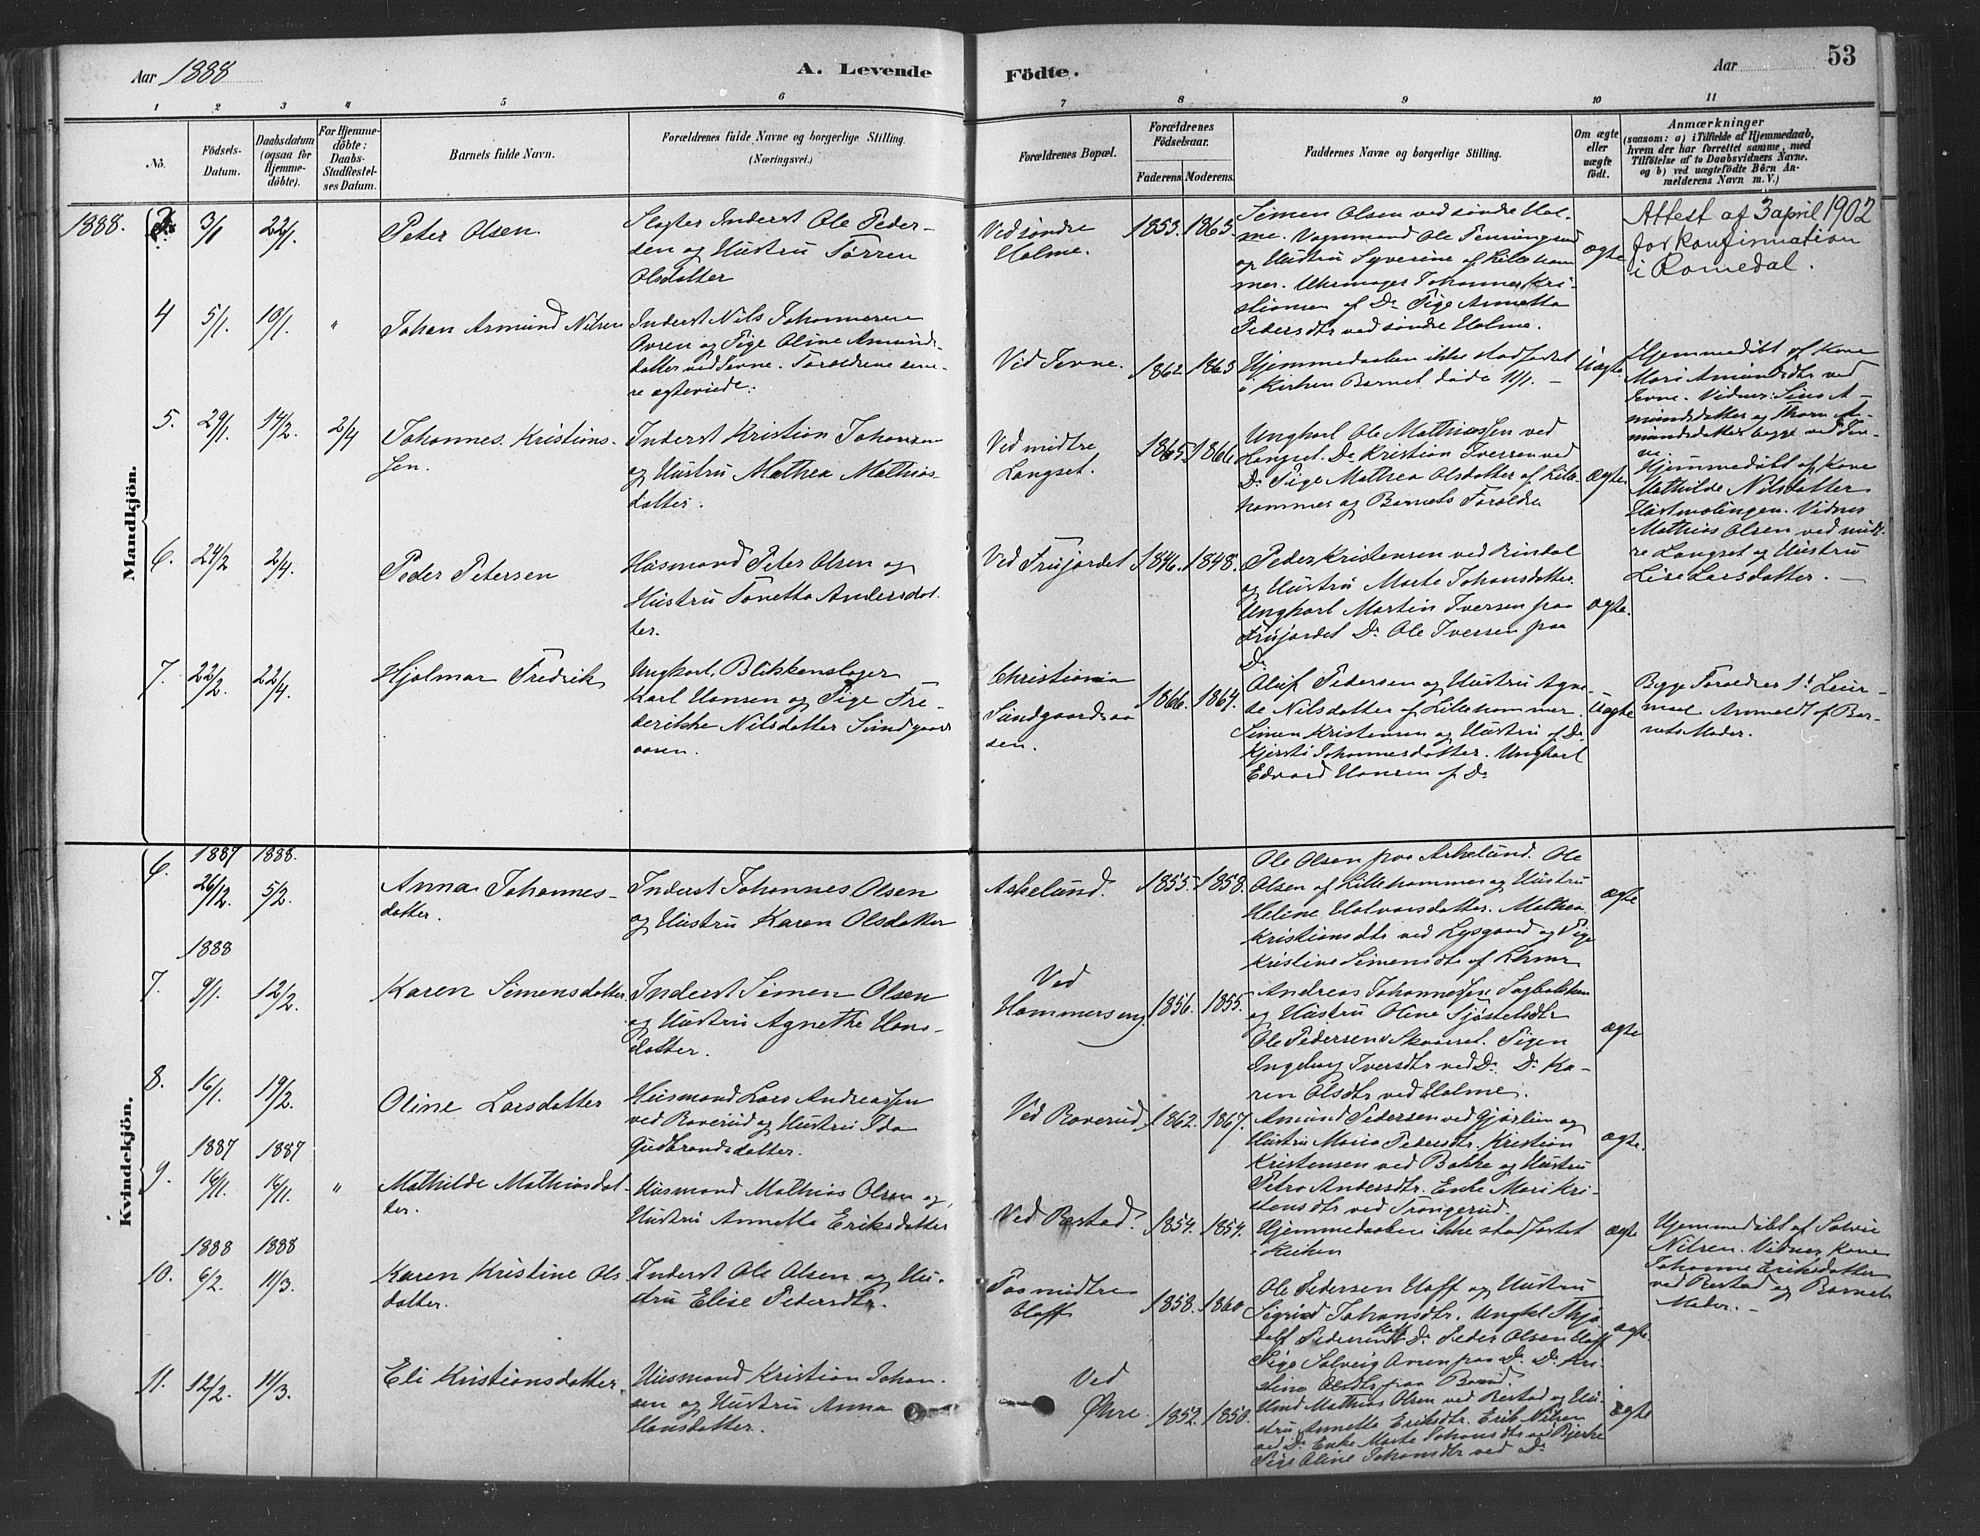 Aar 1888
A. Levende Födte.
Aar
53
1 2 3 4 5 6 7 8 9 10 11
No.
Födsels-
Datum.
Daabsdatum
(ogsaa for
Hjemme-
döbte).
For Hjemme-
döbte:
Daabs-
Stadfæstel-
ses Datum.
Barnets fulde Navn.
Forældrenes fulde Navne og borgerlige Stilling.
(Næringsvei.)
Forældrenes Bopæl.
Forældrenes
Födselsaar.
Faderens. Moderens.
Faddernes Navne og borgerlige Stilling.
Om ægte
eller
uægte
födt.
Anmærkninger
(saasom: a) i Tilfælde af Hjemmedaab,
hvem der har forrettet samme, med
Tilföielse af to Daabsvidners Navne.
og b) ved uægtefödte Börn An-
melderens Navn m. V.)
Mandkjön.
1888. 3. 3/1 22/1. Peter Olsen.
Slagter Inderst Ole Peder-
sen og Hustru Torren
Olsdatter
Ved söndre
Holme.
1853. 1863.
Simen Olsen ved söndre Hol-
me. Vognmand Ole
og Hustru Syverine af Lilleham
mer. Uhrmager Johannes Kri-
stiansen af Do Pige Annetta
Pedersdtr ved söndre Holme.
ægte
Attest af 3 april 1902
for konfirmation
i Romedal.
4 5/1. 10/1. " Johan Amund Nilsen
Inderst Nils Johannesen
Ovren og Pige Oline Amunds
datter ved Jevne. Forældrene sene-
re ægteviede.
Ved Jevne.
1862 1863
Hjemmedaaben ikke stadfæstet
i Kirken Barnet döde 11/1. —
Uægte
Hjemmedöbt af Kone
Mari Amundsdtr ved
Jevne. Vidner: A-
mundsdatter og A-
mundsdatter begge ved Jev-
ne.
5. 29/1. 14/2. 2/4 Johannes Kristians-
sen.
Inderst Kristian Johansen
og Hustru Mathea Mathias-
datter.
Ved midtre
Langset.
1865. 1866
Ungkarl Ole Mathiassen ved
Langset. Do Kristian Iversen ved
Do Pige Mathea Olsdatter af Lille-
hammer og Barnets Forældre
ægte
Hjemmedöbt af Kone
Mathilde Nilsdatter
Vidner
Mathias Olsen ved midt-
re Langset og Hustru
Lise Larsdatter. —
6. 24/2 2/4. Peder Petersen
Husmand Peter Olsen og
Hustru Tonetta Andersdat
ter.
Ved Frujordet
1846. 1848.
Peder Kristensen ved Rindal
og Hustru Marte Johansdatter.
Ungkarl Martin Iversen paa
Frujordet Do Ole Iversen paa
Do
ægte.
7. 22/2. 22/4. Hjalmar Fredrik
Ungkarl, Blikkenslager
Karl Hansen og Pige Fre-
derikke Nilsdatter Sundgaards
aasen.
Christiania
Sundgaardsaa
sen.
1866. 1864.
Oluf Pedersen og Hustru Agne-
te Nilsdatter af Lillehammer.
Simen Kristensen og Hustru af Do
Kjersti Johannesdatter. Ungkarl
Edvard Hansen af Do
Uægte
Begge Forældres 1ste Leier-
maal Anmeldt af Bar-
nets Moder.
Kvindekjön.
6. 1887 26/12. 1888. 5/2. Anna Johannes-
datter.
Inderst Johannes Olsen
og Hustru Karen Olsdatter
Askelund.
1855. 1858.
Ole Olsen paa Askelund. Ole
Olsen af Lillehammer og Hustru
Helene Halvorsdatter. Mathea
Kristiansdtr ved Lysgaard og Pige
Kristine Simensdtr af
ægte
7. 1888 9/1. 12/2. Karen Simensdatter
Inderst Simen Olsen
og Hustru Agnethe Hans-
datter.
Ved
Hammerseng
1856. 1855.
Andreas Johannessen Sagbakken
og Hustru Oline
Ole Pedersen Skaaret. Pigen
Ingeborg Iversdtr ved Do. Do Ka-
ren Olsdtr ved Holme.
ægte
8. 16/1. 19/2. Oline Larsdatter
Husmand Lars Andreassen
ved Roverud og Hustru Ida
Gudbrandsdatter.
Ved Roverud
1862. 1867.
Amund Pedersen ved Gjörlien og
Hustru Maria Pedersdtr. Kristian
Kristensen ved Bakke og Hustru
Petra Andersdtr. Enke Mari Kri-
stensdtr ved Trongerud.
ægte.
9. 1887 16/11. 1887 16/11. " Mathilde Mathiasdat-
ter.
Husmand Mathias Olsen og
Hustru Annetta Eriksdatter
Ved Restad.
1854. 1854.
Hjemmedaaben ikke stadfæstet
i Kirken
ægte
Hjemmedöbt af
Nilsen. Vidner Kone
Johanne Eriksdatter
ved Restad og Barnets
Moder. —
10. 1888 6/2. 1888 11/3. Karen Kristine Ols
datter.
Inderst Ole Olsen og Hu-
stru Elise Pedersdtr.
Paa midtre
Hoff
1858. 1860
Ole Pedersen Hoff og Hustru
Sigrid Johansdtr. Ungkl Thjo
dolf Pedersen Hoff Do Peder Olsen Hoff
Pige Solveig Ovren paa Do. Do Kri-
stine Olsdtr paa
ægte
11. 12/2. 11/3. Eli Kristiansdatter.
Husmand Kristian Johan-
sen og Hustru Anna
Hansdatter.
Ved
Öhre.
1852. 1850.
Hmd Mathias Olsen ved Restad og Hu-
stru Annetta Eriksdtr. Erik Nilsen
ved Do Enke Marte Johansdtr ved Bjerke
Pige Oline Johansdtr ved Do
ægte